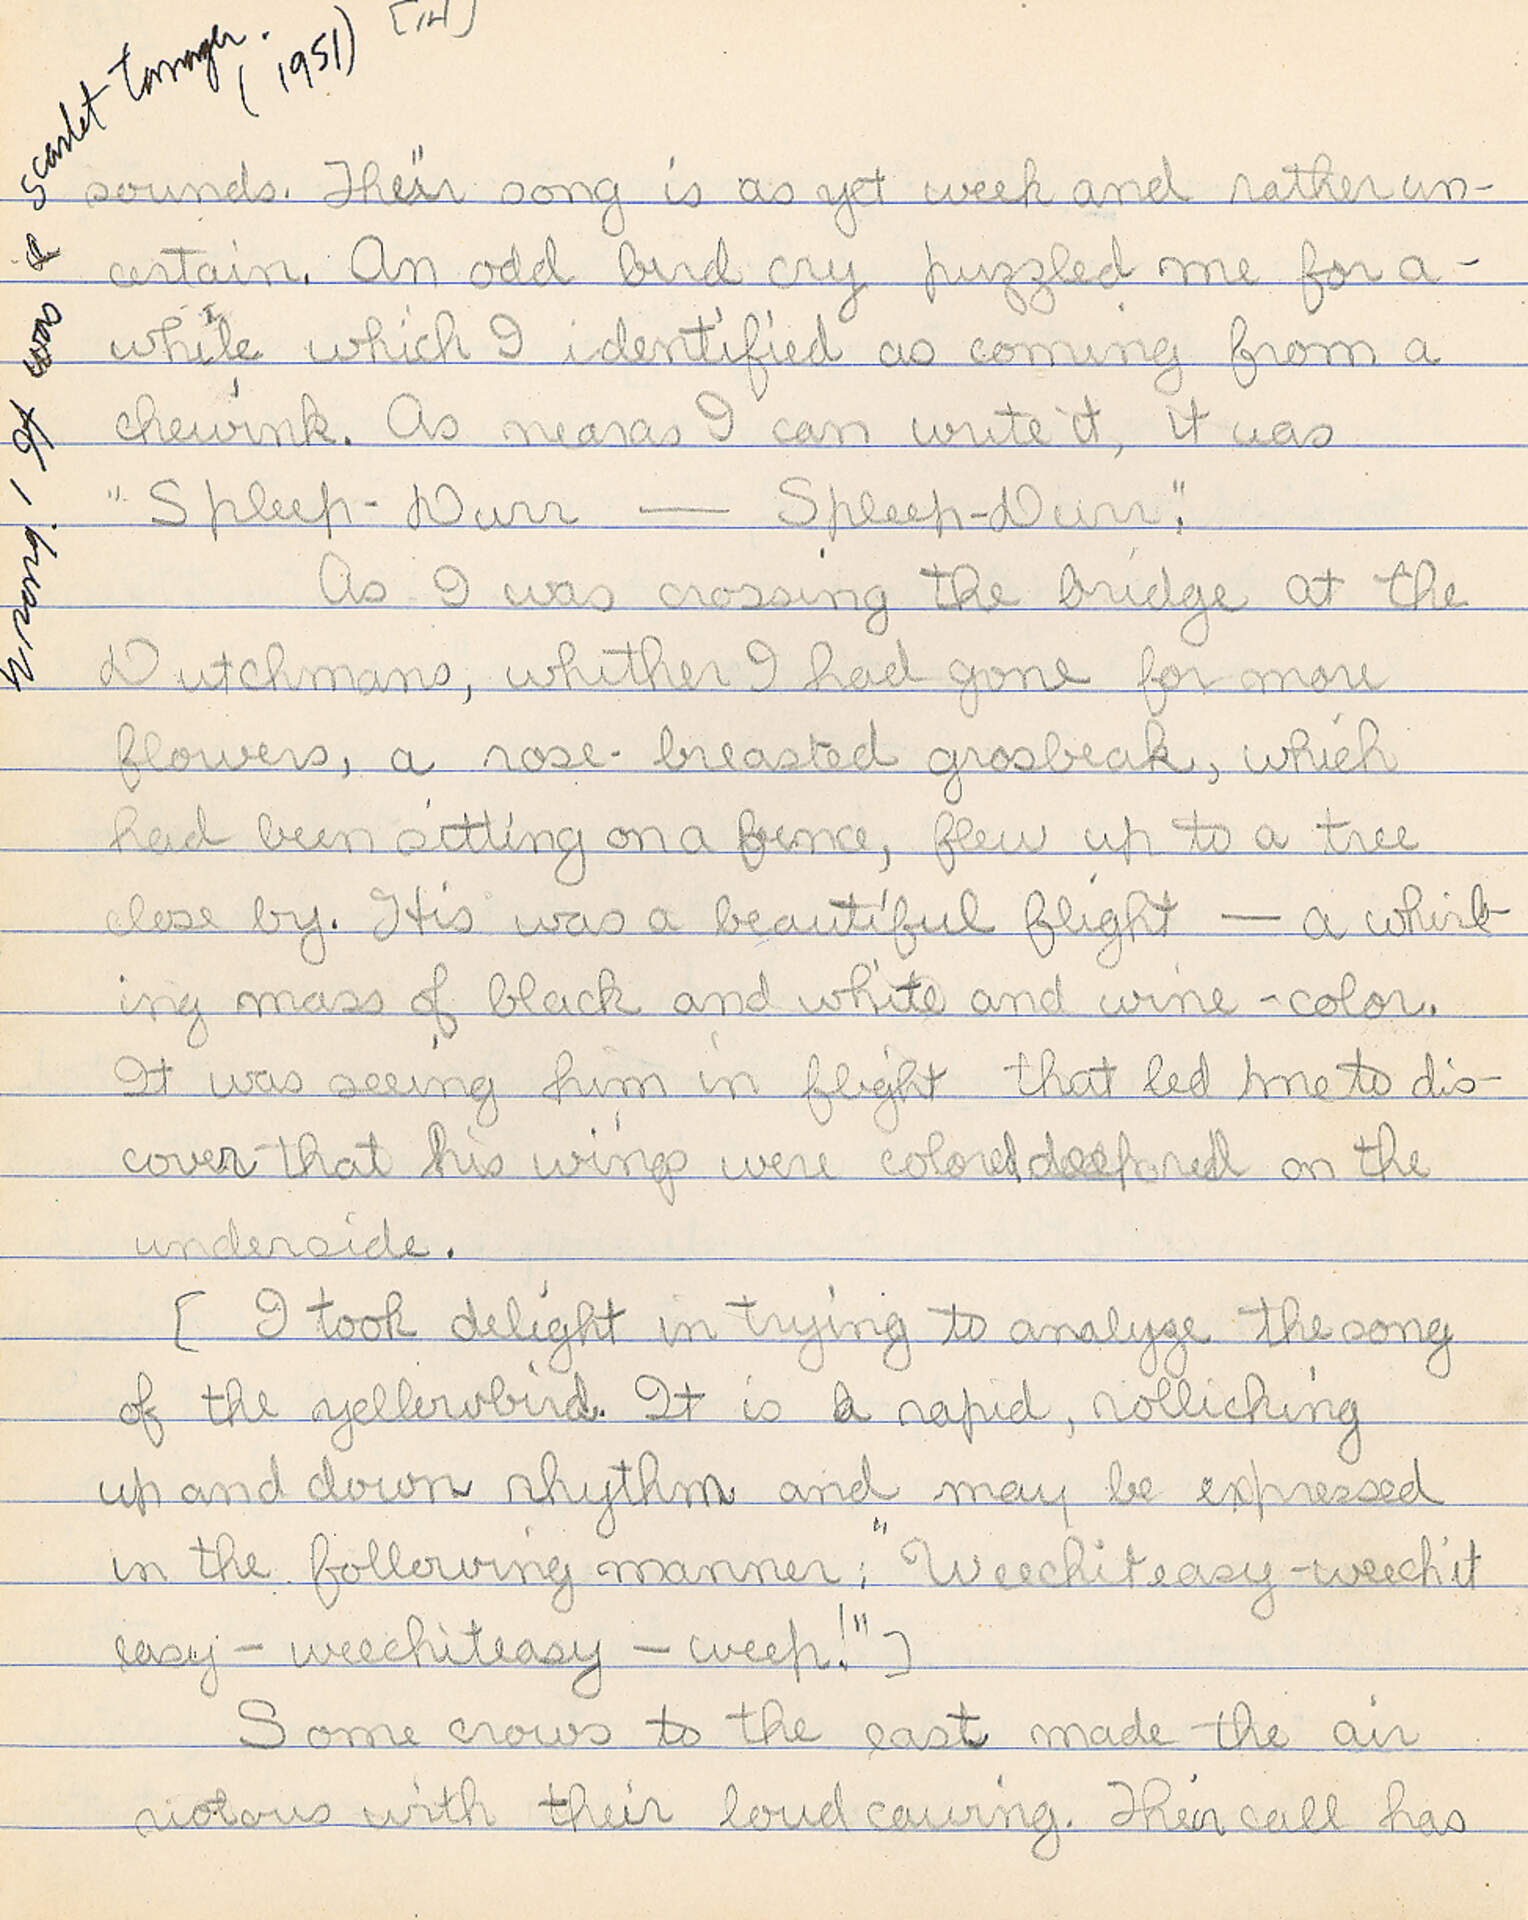 [14]
Wrong! It was a Scarlet Tanager.
(1951)
sounds. Their song is as yet week and rather un-
certain. An odd bird cry puzzled me for a-
while which I identified as coming from a
chewink. As nearas I can write it, it was
"Spleep-Durr — Spleep-Durr".
As I was crossing the bridge at the
Dutchmans, whither I had gone for more
flowers, a rose-breasted grosbeak, which
had been sitting on a fence, flew up to a tree
close by. His was a beautiful flight — a whirl-
ing mass of black and white and wine-color.
It was seeing him in flight that led me to dis-
cover that his wings were colored deep red on the
underside.
[ I took delight in trying to analyze the song
of the yellowbird. It is a rapid, rollicking
up and down rhythm and may be expressed
in the following manner; "Weechiteasy-weechit
easy - weechiteasy - weep!"]
Some crows to the east made the air
riotous with their loud cawing. Their call has